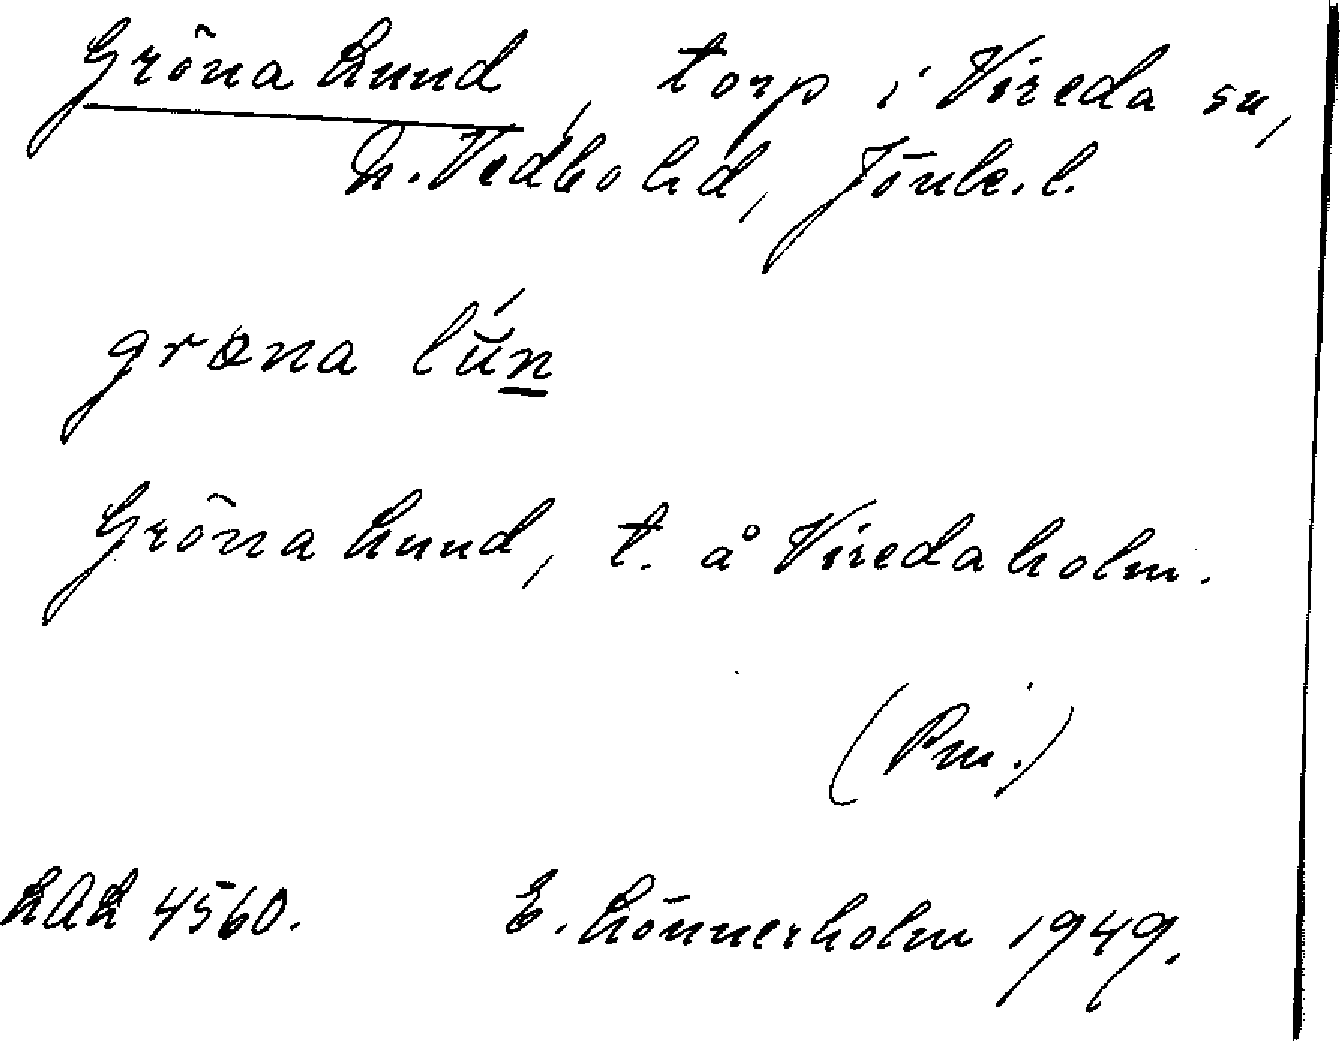 Gröna Lund, torp i Vireda sn,
N. Vedbo hd, Jönk. l.
grœna lŭ́n
Gröna Lund, t. å Viredaholm.
(Pm.)
LAL 4560. E. Lönnerholm 1949.